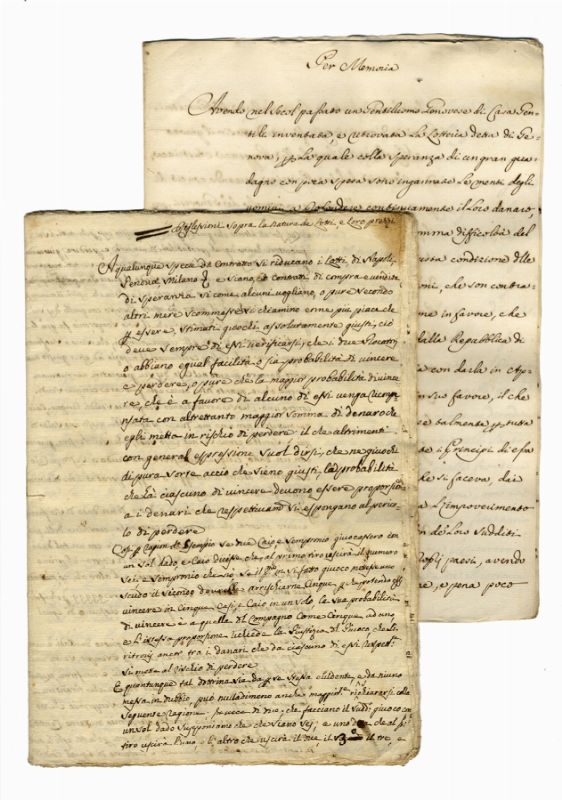 Per Memoria
Avendo nel secol passato un Gentiluomo Genovese di Casa Gen-
tile inventata, e ritrovata la Lotteria detta di Ge-
nova, la quale colla speranza di un gran gua-
dagno con poca spesa
continuamente il loro danaro,
somma difficoltà del
condizione delle
che son contra-
in favore, che
dalla Repubblica di
con darla in Ap-
suo favore, il che
talmente tutta
i Principi di essa
si faceva, dai
l'Impoverimento
de Loro Sudditi
paesi, avendo
e pena poco
Riflessioni sopra la natura de Lotti, e loro prezzi
A qualunque specie di Contratto si riducano i Lotti di Napoli,
Genova, Milano & e siano, o contratti di compra e vendita
di speranza si come alcuni vogliano, o pure secondo
altri mere scommesse, si chiamino come più piace, che
p essere stimati giochi assolutamente giusti, ciò
deve sempre di essi verificarsi, che i due Giocatori
abbiano equal facilità o sia probabilità di vincere
e perdere, o pure che la maggior probabilità di vince
re, che è a favore di alcuno di essi venga Compen
sata con altrettanto maggior somma di denaro che
egli metta in rischio di perdere il che altrimenti
con general espressione suol dirsi, che ne giuochi
di pura sorte acciò che sieno giusti, la probabilità
che ha ciascuno di vincere devono essere proporzion
a i denari che rispettivamente si espongano al perico
lo di perdere
Esempio se tra Caio e Sempronio giuocassero con
un sol dado, e Caio dicesse che al primo tiro uscirà il numero
sei e Sempronio che nò se il p.mo in sì fatto giuoco mettesse uno
scudo il secondo dovrebbe arrischiarne Cinque, potendo egli
vincere in Cinque Casi, e Caio in un solo, la sua probabilità
di vincere è a quella del Compagno come Cinque ad uno
e l'istessa proporzione richiede la Giustizia del Giuoco, che si
ritrovi ancor tra i danari che da ciascuno di essi
si mette al rischio di perdere
E quantunque tal dottrina sia da per se stessa evidente, e da niuno
messa in dubbio, può nulladimeno anche rischiararsi colla
seguente ragione. In vece di due, che facciano il sud.o giuoco con
un sol dado supponiamo che che siano sei, e uno dica che al p.o
tiro uscirà l'uno, l'altro che uscirà il due, il 3.o il tre, e